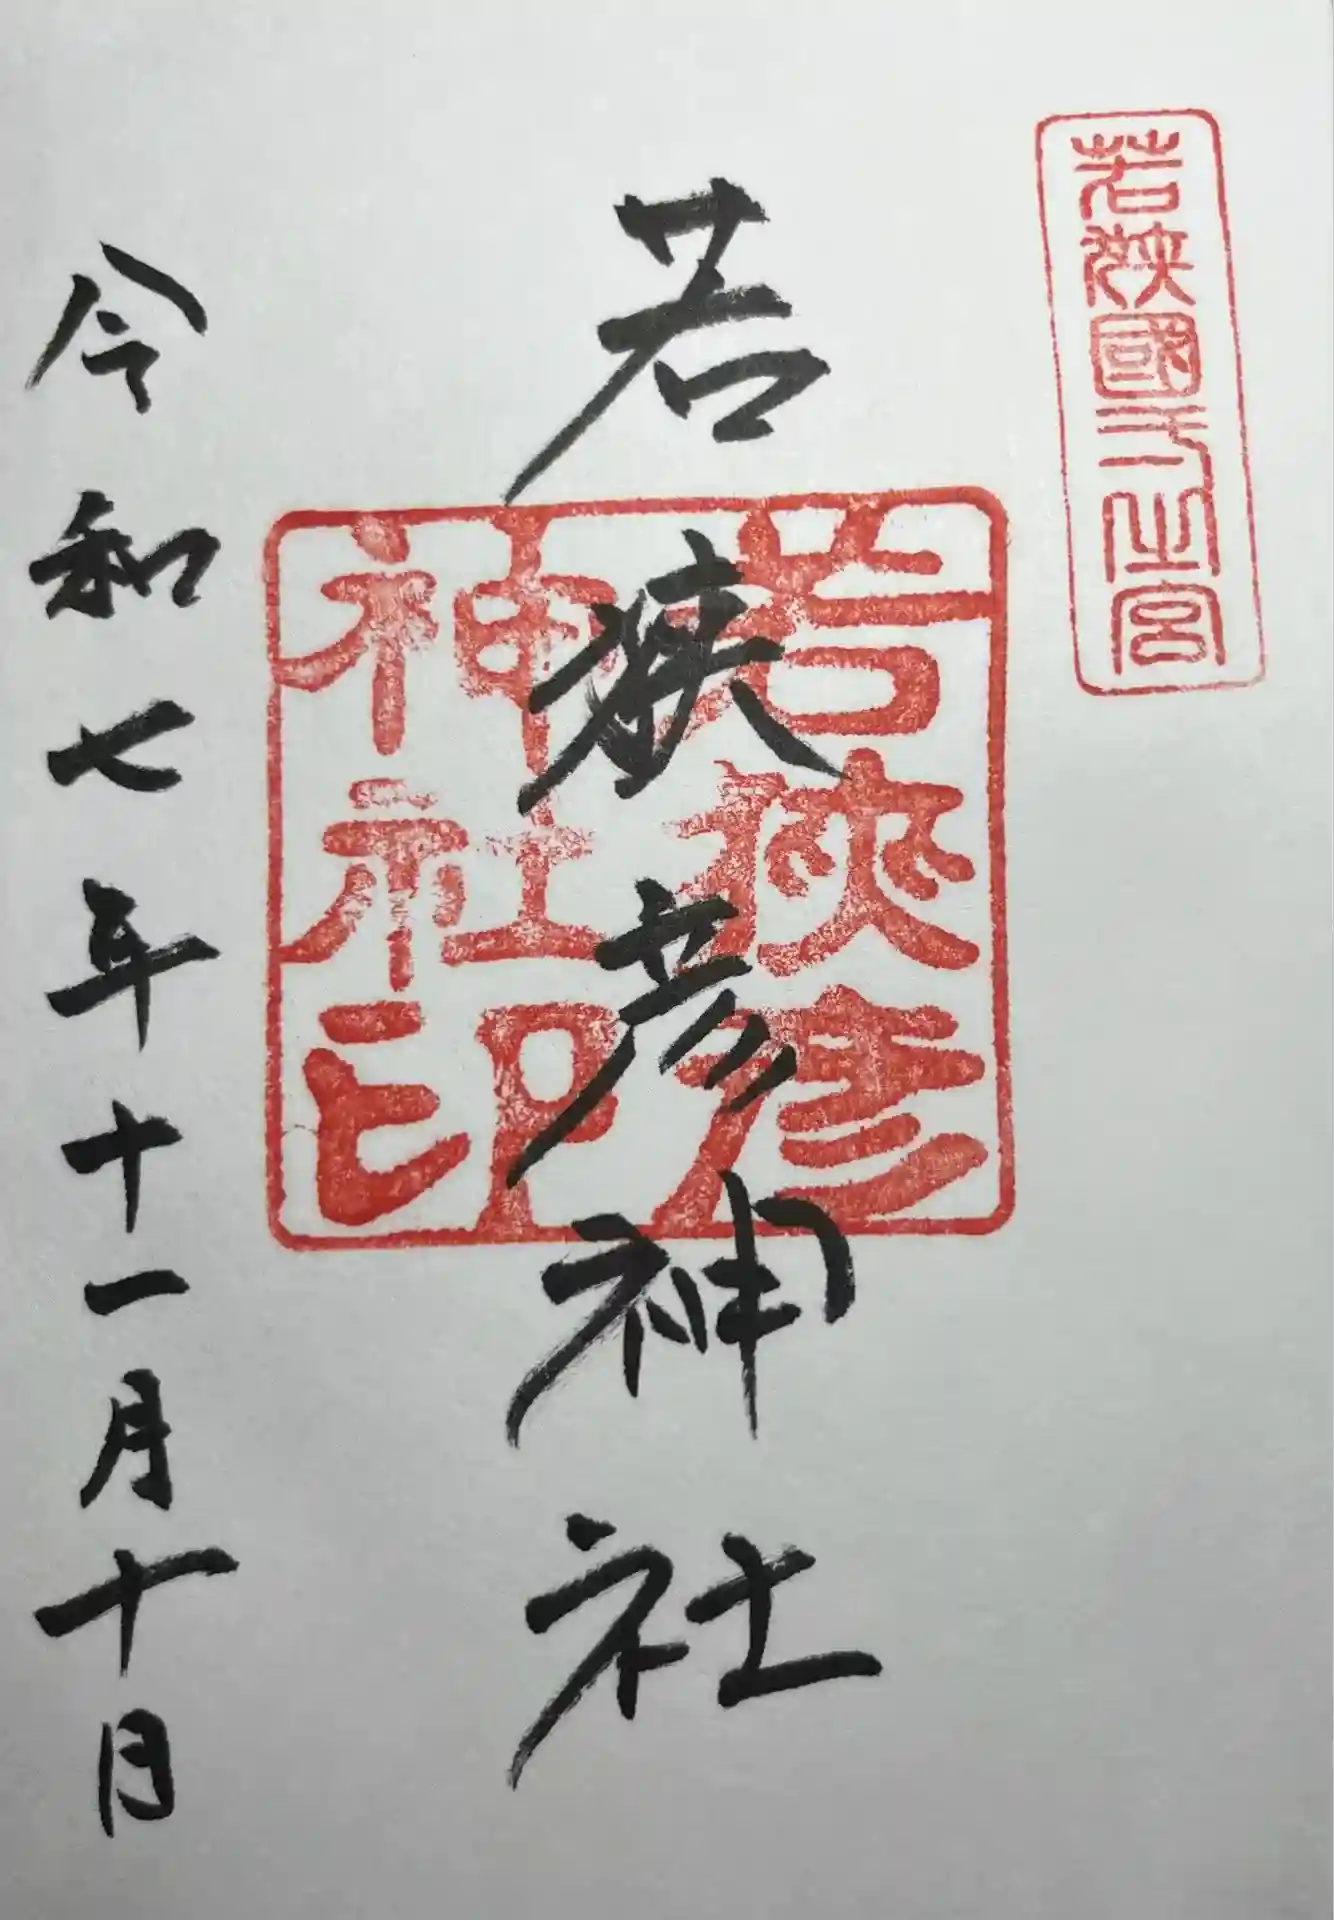 若狹國弌之宮
若狭彦神社
若狹彦
神社印
令和七年十一月十日